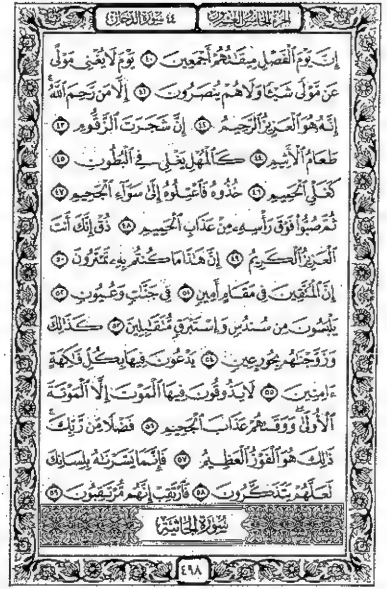 الجزء الخامس والعشرون
٤٤ سورة الدخان
إِنَّ يَوْمَ ٱلْفَصْلِ مِيقَـٰتُهُمْ أَجْمَعِينَ ٤٠ يَوْمَ لَا يُغْنِى مَوْلًى
عَن مَّوْلًى شَيْـًٔا وَلَا هُمْ يُنصَرُونَ ٤١ إِلَّا مَن رَّحِمَ ٱللَّهُ ۚ
إِنَّهُۥ هُوَ ٱلْعَزِيزُ ٱلرَّحِيمُ ٤٢ إِنَّ شَجَرَتَ ٱلزَّقُّومِ ٤٣
طَعَامُ ٱلْأَثِيمِ ٤٤ كَٱلْمُهْلِ يَغْلِى فِى ٱلْبُطُونِ ٤٥
كَغَلْىِ ٱلْحَمِيمِ ٤٦ خُذُوهُ فَٱعْتِلُوهُ إِلَىٰ سَوَآءِ ٱلْجَحِيمِ ٤٧
ثُمَّ صُبُّوا۟ فَوْقَ رَأْسِهِۦ مِنْ عَذَابِ ٱلْحَمِيمِ ٤٨ ذُقْ إِنَّكَ أَنتَ
ٱلْعَزِيزُ ٱلْكَرِيمُ ٤٩ إِنَّ هَـٰذَا مَا كُنتُم بِهِۦ تَمْتَرُونَ ٥٠
إِنَّ ٱلْمُتَّقِينَ فِى مَقَامٍ أَمِينٍ ٥١ فِى جَنَّـٰتٍ وَعُيُونٍ ٥٢
يَلْبَسُونَ مِن سُندُسٍ وَإِسْتَبْرَقٍ مُّتَقَـٰبِلِينَ ٥٣ كَذَٰلِكَ
وَزَوَّجْنَـٰهُم بِحُورٍ عِينٍ ٥٤ يَدْعُونَ فِيهَا بِكُلِّ فَـٰكِهَةٍ
ءَامِنِينَ ٥٥ لَا يَذُوقُونَ فِيهَا ٱلْمَوْتَ إِلَّا ٱلْمَوْتَةَ
ٱلْأُولَىٰ ۖ وَوَقَىٰهُمْ عَذَابَ ٱلْجَحِيمِ ٥٦ فَضْلًا مِّن رَّبِّكَ ۚ
ذَٰلِكَ هُوَ ٱلْفَوْزُ ٱلْعَظِيمُ ٥٧ فَإِنَّمَا يَسَّرْنَـٰهُ بِلِسَانِكَ
لَعَلَّهُمْ يَتَذَكَّرُونَ ٥٨ فَٱرْتَقِبْ إِنَّهُم مُّرْتَقِبُونَ ٥٩
سورة الجاثية
٤٩٨